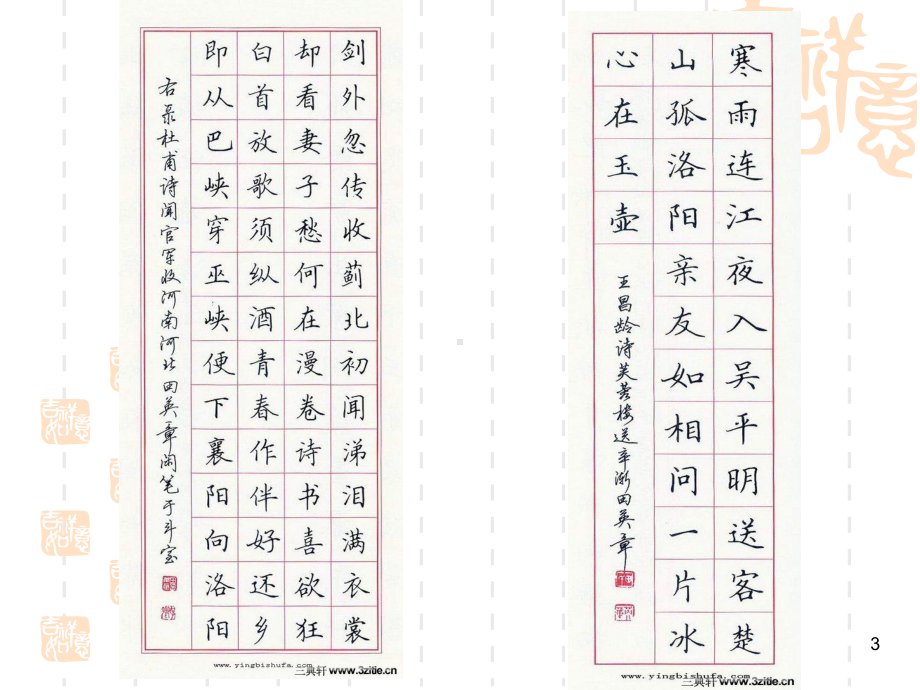 剑外忽传收蓟北初闻涕泪满衣裳
却看妻子愁何在漫卷诗书喜欲狂
白首放歌须纵酒青春作伴好还乡
即从巴峡穿巫峡便下襄阳向洛阳
右录杜甫诗闻官军收河南河北田英章闲笔于斗室
www.yingbishufa.com
三典轩 www.3zitie.cn
寒雨连江夜入吴平明送客楚
山孤洛阳亲友如相问一片冰
心在玉壶
王昌龄诗芙蓉楼送辛渐田英章
www.yingbishufa.com
三典轩 www.3zitie.cn
吉祥如意
吉祥如意
吉祥如意
3